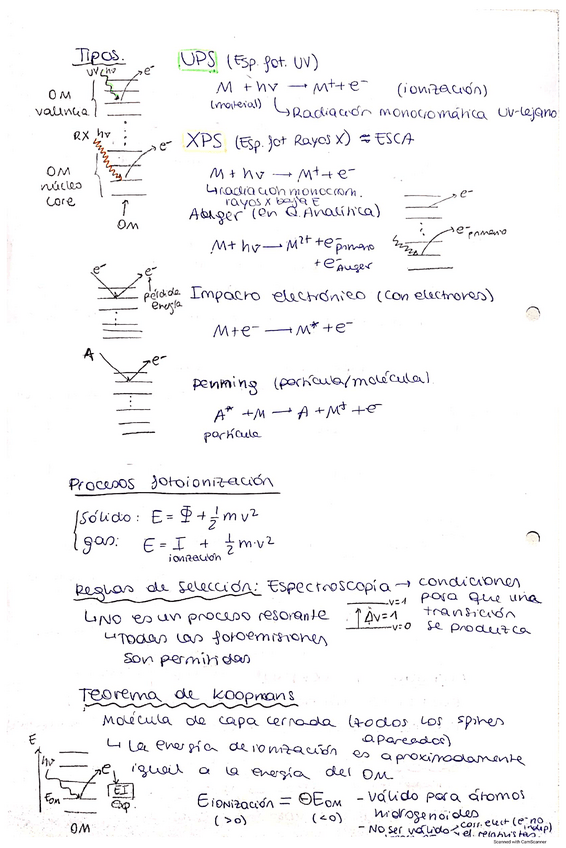 Tipos.
UPS (Esp. fot. UV)
UV hν e⁻
OM valencia
M + hν → M⁺ + e⁻ (ionización)
(material) ↳ Radiación monocromática UV-lejano
RX hν e⁻
XPS (Esp. fot Rayos X) ≈ ESCA
OM núcleo core
OM
M + hν → M⁺ + e⁻
↳ radiación monocrom. rayos X baja E
Auger (en Q. Analítica)
e⁻
e⁻ primario
M + hν → M²⁺ + e⁻ primario
+ e⁻ Auger
e⁻ e⁻
pérdida energía
Impacto electrónico (con electrones)
M + e⁻ → M* + e⁻
A e⁻
Penning (partícula/molécula)
A* + M → A + M⁺ + e⁻
partícula
Procesos fotoionización
Sólido: E = Φ + ½ m v²
gas: E = I + ½ m·v²
ionización
Reglas de selección: Espectroscopía → condiciones
para que una
transición
se produzca
v=1
Δv=1
v=0
↳ No es un proceso resonante
↳ Todas las fotoemisiones
son permitidas
Teorema de Koopmans
Molécula de capa cerrada (todos los spines
apareados)
↳ La energía de ionización es aproximadamente
igual a la energía del OM
E
hν
e⁻
EI
E OM
OM
E ionización = ⊖E OM
(>0) (<0)
- Válido para átomos
hidrogenoides
- No ser válido
corr. elect (e⁻ no indep)
el. relativistas.
Scanned with CamScanner